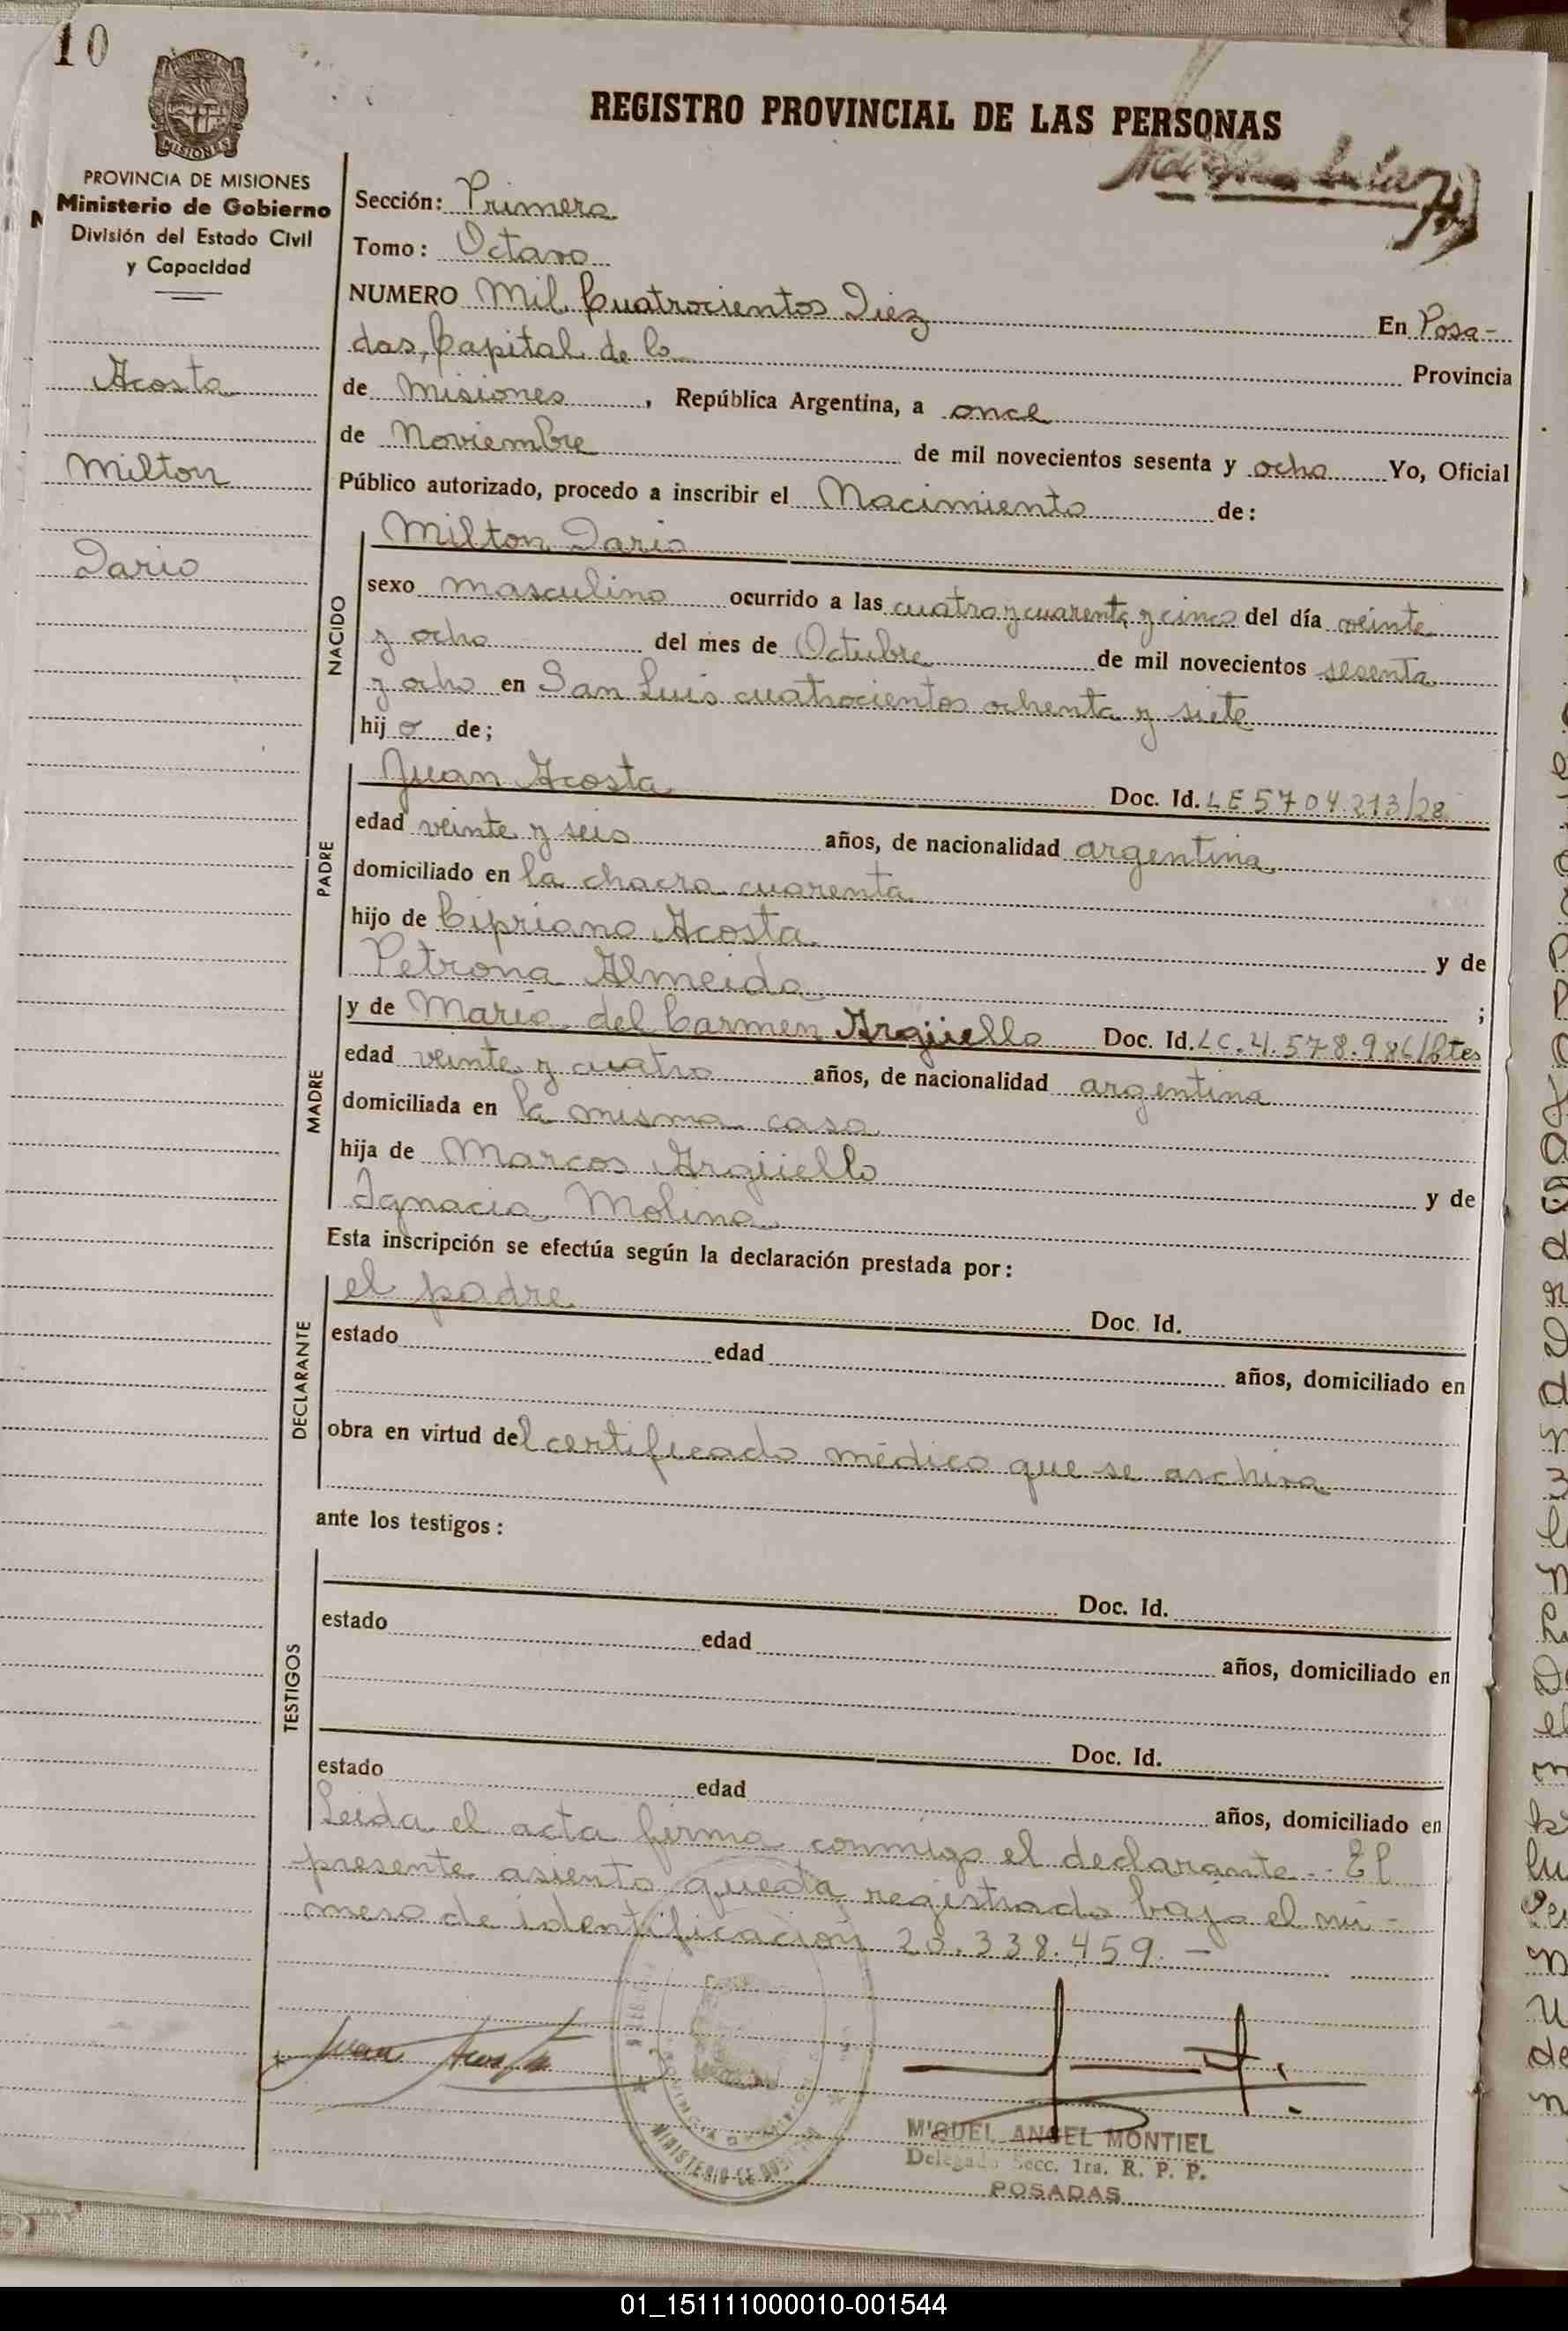 10
PROVINCIA DE MISIONES
Ministerio de Gobierno
División del Estado Civil
y Capacidad
REGISTRO PROVINCIAL DE LAS PERSONAS
Sección: Primera
Tomo: Octavo
NUMERO Mil Cuatrocientos Diez En Posa-
das, Capital de la Provincia
Acosta
de Misiones, República Argentina, a once
de Noviembre de mil novecientos sesenta y ocho Yo, Oficial
Milton
Público autorizado, procedo a inscribir el Nacimiento de:
Milton Dario
Dario
NACIDO
sexo masculino ocurrido a las cuatro y cuarenta y cinco del día veinte
y ocho del mes de Octubre de mil novecientos sesenta
y ocho en San Luis cuatrocientos ochenta y siete
hijo de;
PADRE
Juan Acosta Doc. Id. LE 5704.213/28
edad veinte y seis años, de nacionalidad argentina
domiciliado en la chacra cuarenta
hijo de Cipriano Acosta y de
Petrona Almeida ;
MADRE
y de María del Carmen Argüello Doc. Id. LC.4.578.986/Ctes
edad veinte y cuatro años, de nacionalidad argentina
domiciliada en la misma casa
hija de Marcos Argüello y de
Ignacia Molina
Esta inscripción se efectúa según la declaración prestada por:
DECLARANTE
el padre Doc. Id.
estado edad años, domiciliado en
obra en virtud del certificado médico que se archiva
ante los testigos:
TESTIGOS
Doc. Id.
estado edad años, domiciliado en
Doc. Id.
estado edad años, domiciliado en
Leida el acta firma conmigo el declarante.. El
presente asiento queda registrado bajo el nú-
mero de identificación 20.338.459. -
Juan Acosta
MINISTERIO DE GOBIERNO
MIGUEL ANGEL MONTIEL
Delegado Secc. 1ra. R. P. P.
POSADAS
01_151111000010-001544